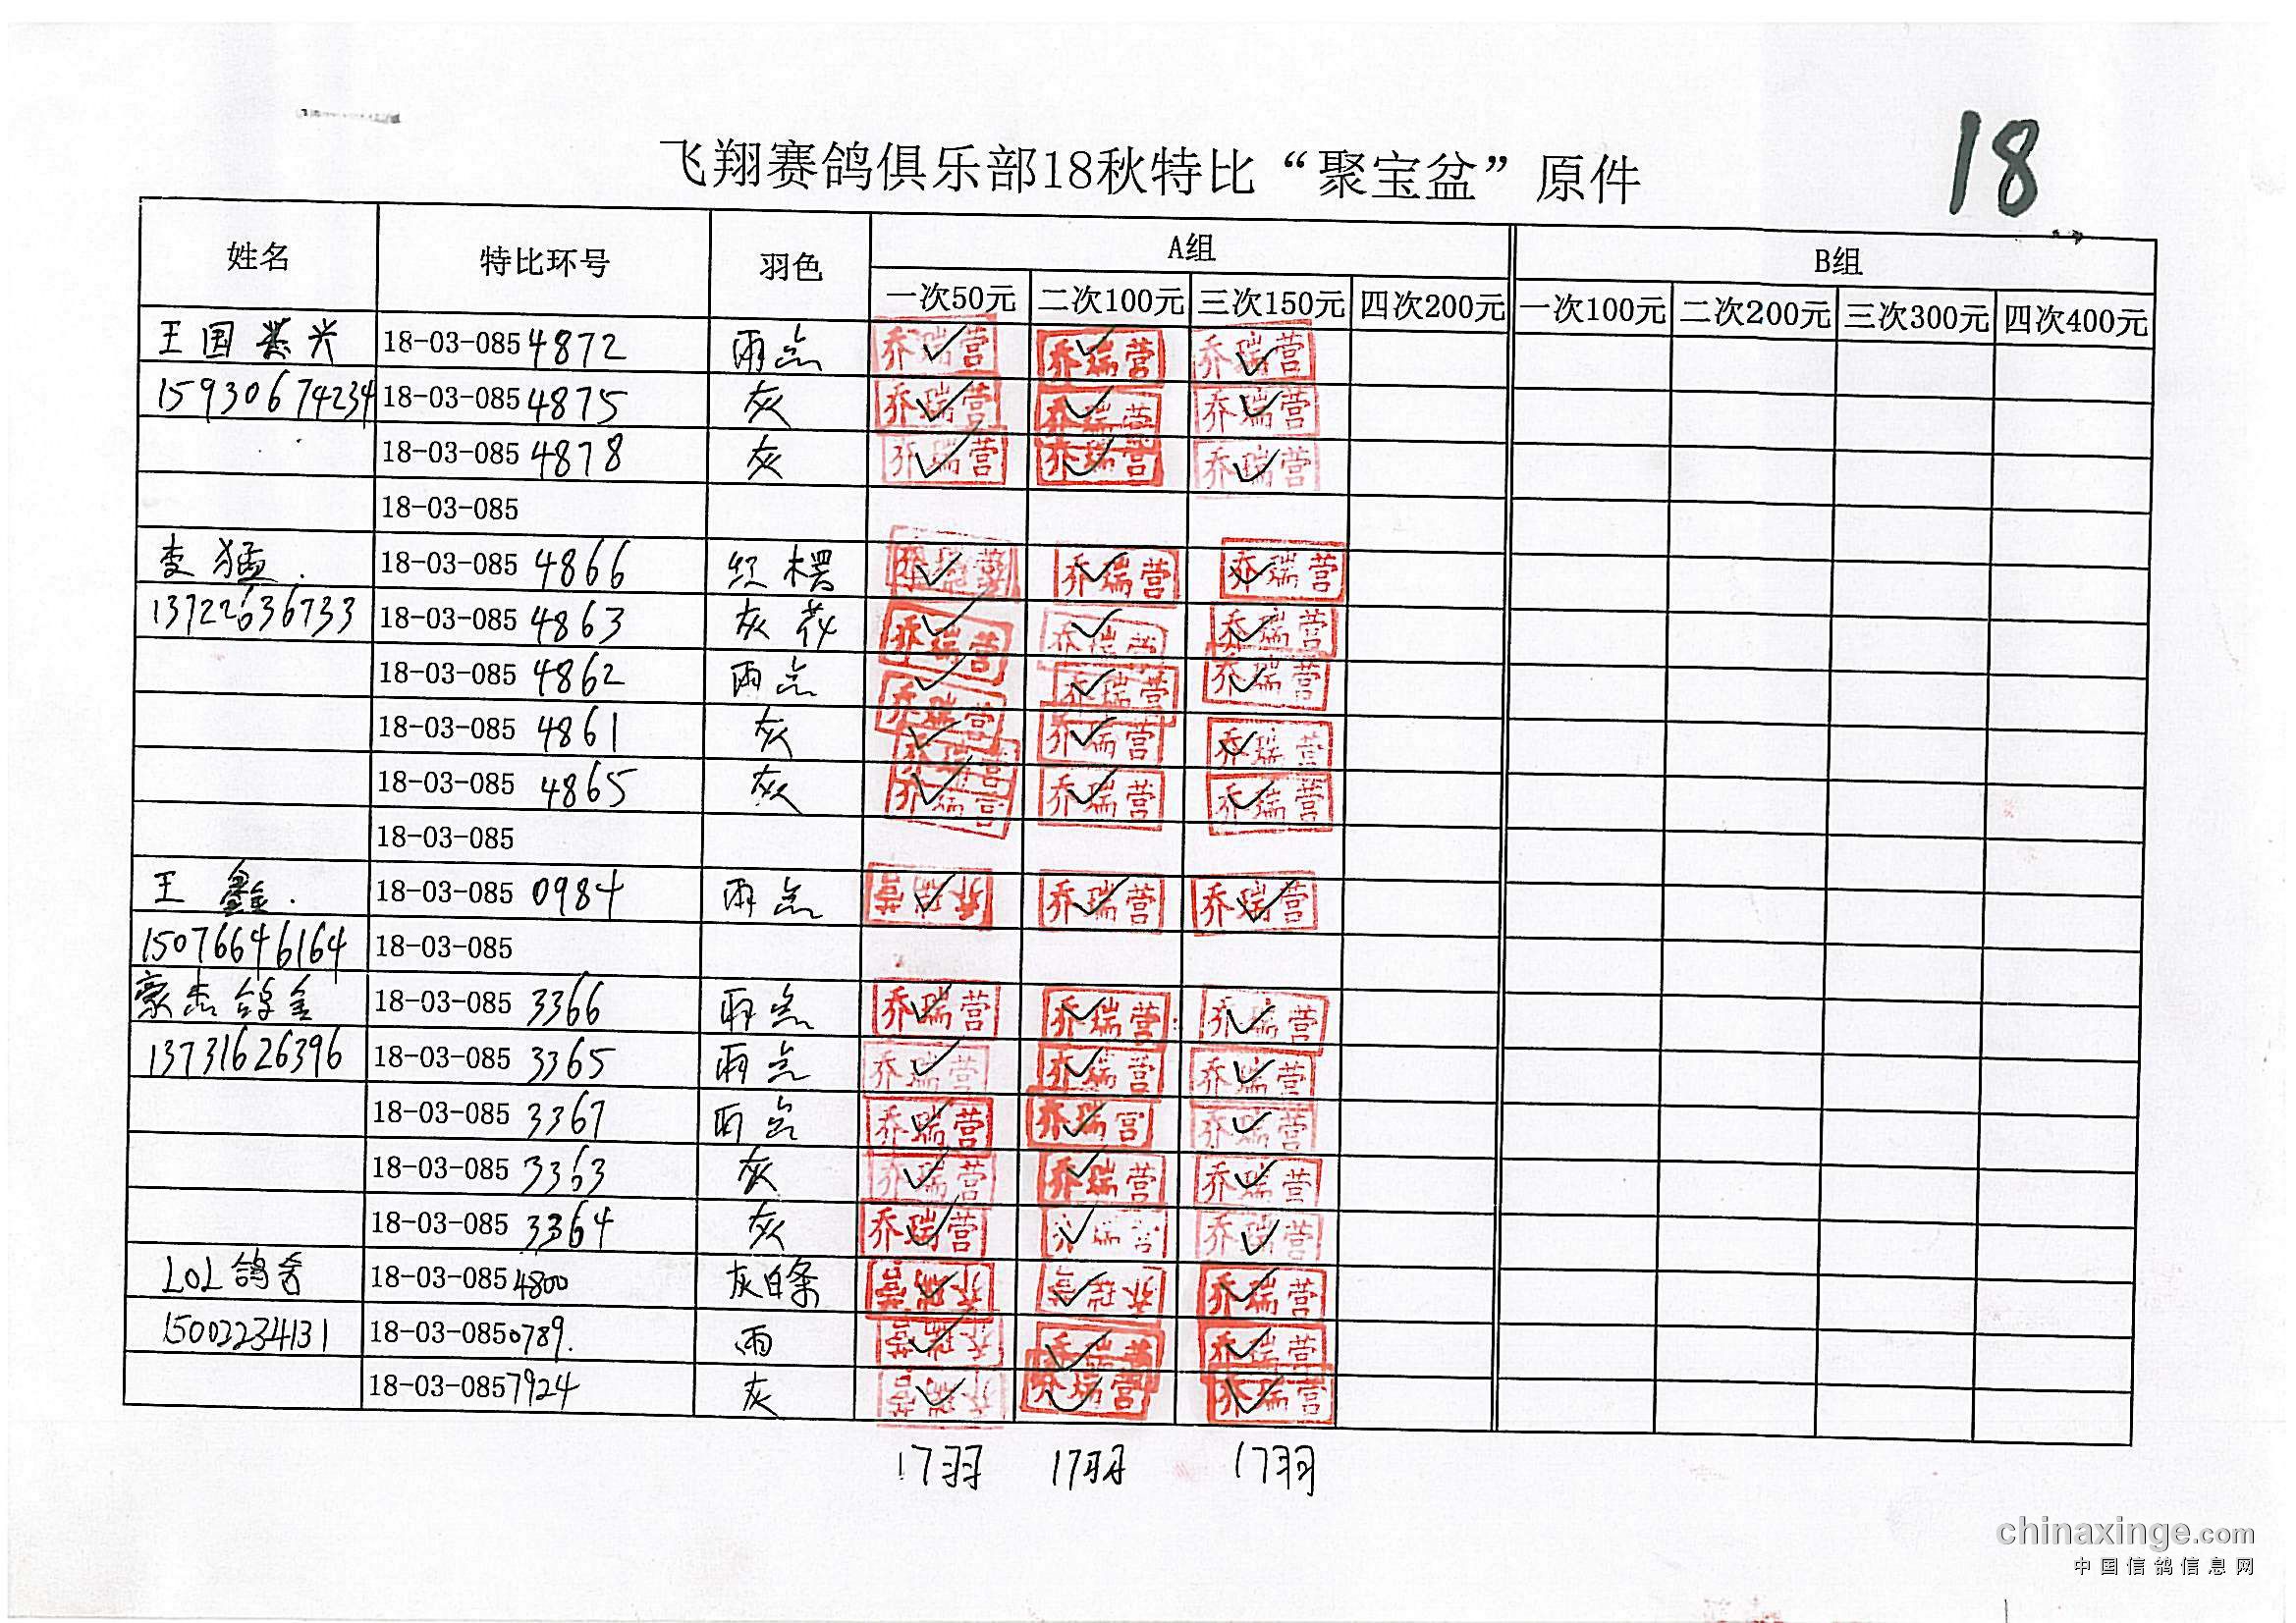 18
飞翔赛鸽俱乐部18秋特比“聚宝盆”原件
姓名 特比环号 羽色 A组 B组
一次50元 二次100元 三次150元 四次200元 一次100元 二次200元 三次300元 四次400元
王国 兴 18-03-085 4872 雨点 乔瑞营 ✓ 乔瑞营 ✓ 乔瑞营 ✓
15930674234 18-03-085 4875 灰 乔瑞营 ✓ 乔瑞营 ✓ 乔瑞营 ✓
18-03-085 4878 灰 乔瑞营 ✓ 乔瑞营 ✓ 乔瑞营 ✓
18-03-085
李猛. 18-03-085 4866 红楞 乔瑞营 ✓ 乔瑞营 ✓ 乔瑞营 ✓
13722636733 18-03-085 4863 灰花 乔瑞营 ✓ 乔瑞营 ✓ 乔瑞营 ✓
18-03-085 4862 雨点 乔瑞营 ✓ 乔瑞营 ✓ 乔瑞营 ✓
18-03-085 4861 灰 乔瑞营 ✓ 乔瑞营 ✓ 乔瑞营 ✓
18-03-085 4865 灰 乔瑞营 ✓ 乔瑞营 ✓ 乔瑞营 ✓
18-03-085
王鑫. 18-03-085 0984 雨点 乔瑞营 ✓ 乔瑞营 ✓ 乔瑞营 ✓
15076646164 18-03-085
豪杰鸽舍 18-03-085 3366 雨点 乔瑞营 ✓ 乔瑞营 ✓ 乔瑞营 ✓
13731626396 18-03-085 3365 雨点 乔瑞营 ✓ 乔瑞营 ✓ 乔瑞营 ✓
18-03-085 3367 雨点 乔瑞营 ✓ 乔瑞营 ✓ 乔瑞营 ✓
18-03-085 3363 灰 乔瑞营 ✓ 乔瑞营 ✓ 乔瑞营 ✓
18-03-085 3364 灰 乔瑞营 ✓ 乔瑞营 ✓ 乔瑞营 ✓
LOL鸽舍 18-03-085 4800 灰白条 乔瑞营 ✓ 乔瑞营 ✓ 乔瑞营 ✓
15002234131 18-03-085 0789. 雨 乔瑞营 ✓ 乔瑞营 ✓ 乔瑞营 ✓
18-03-085 7924 灰 乔瑞营 ✓ 乔瑞营 ✓ 乔瑞营 ✓
17羽 17羽 17羽
chinaxinge.com
中国信鸽信息网